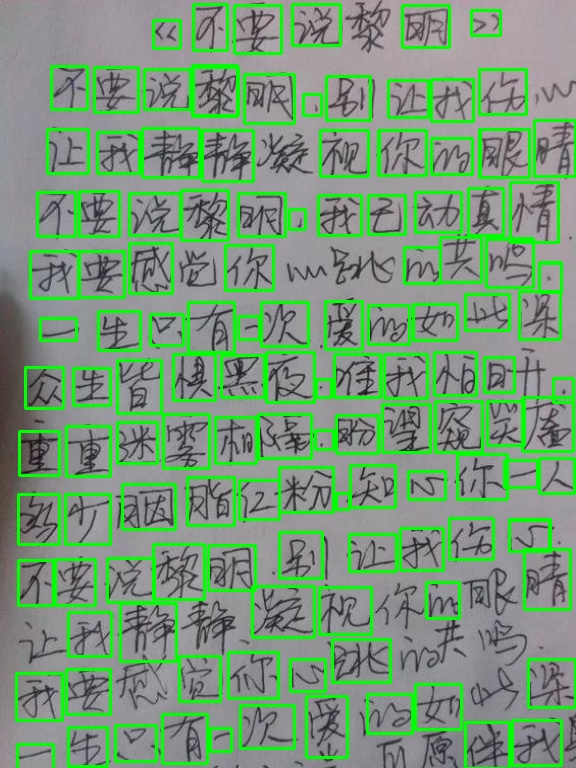 《不要说黎明》
不要说黎明,别让我伤心
让我静静凝视你的眼睛
不要说黎明,我已动真情
我要感觉你心跳的共鸣.
一生只有一次爱的如此深
众生皆惧黑夜,唯我怕日升.
重重迷雾相隔,盼望窥
多少胭脂红粉,知心你一人
不要说黎明.别让我伤心.
让我静静凝视你的眼睛
我要感觉你心跳的共鸣.
一生只有一次爱的如此深
愿伴我